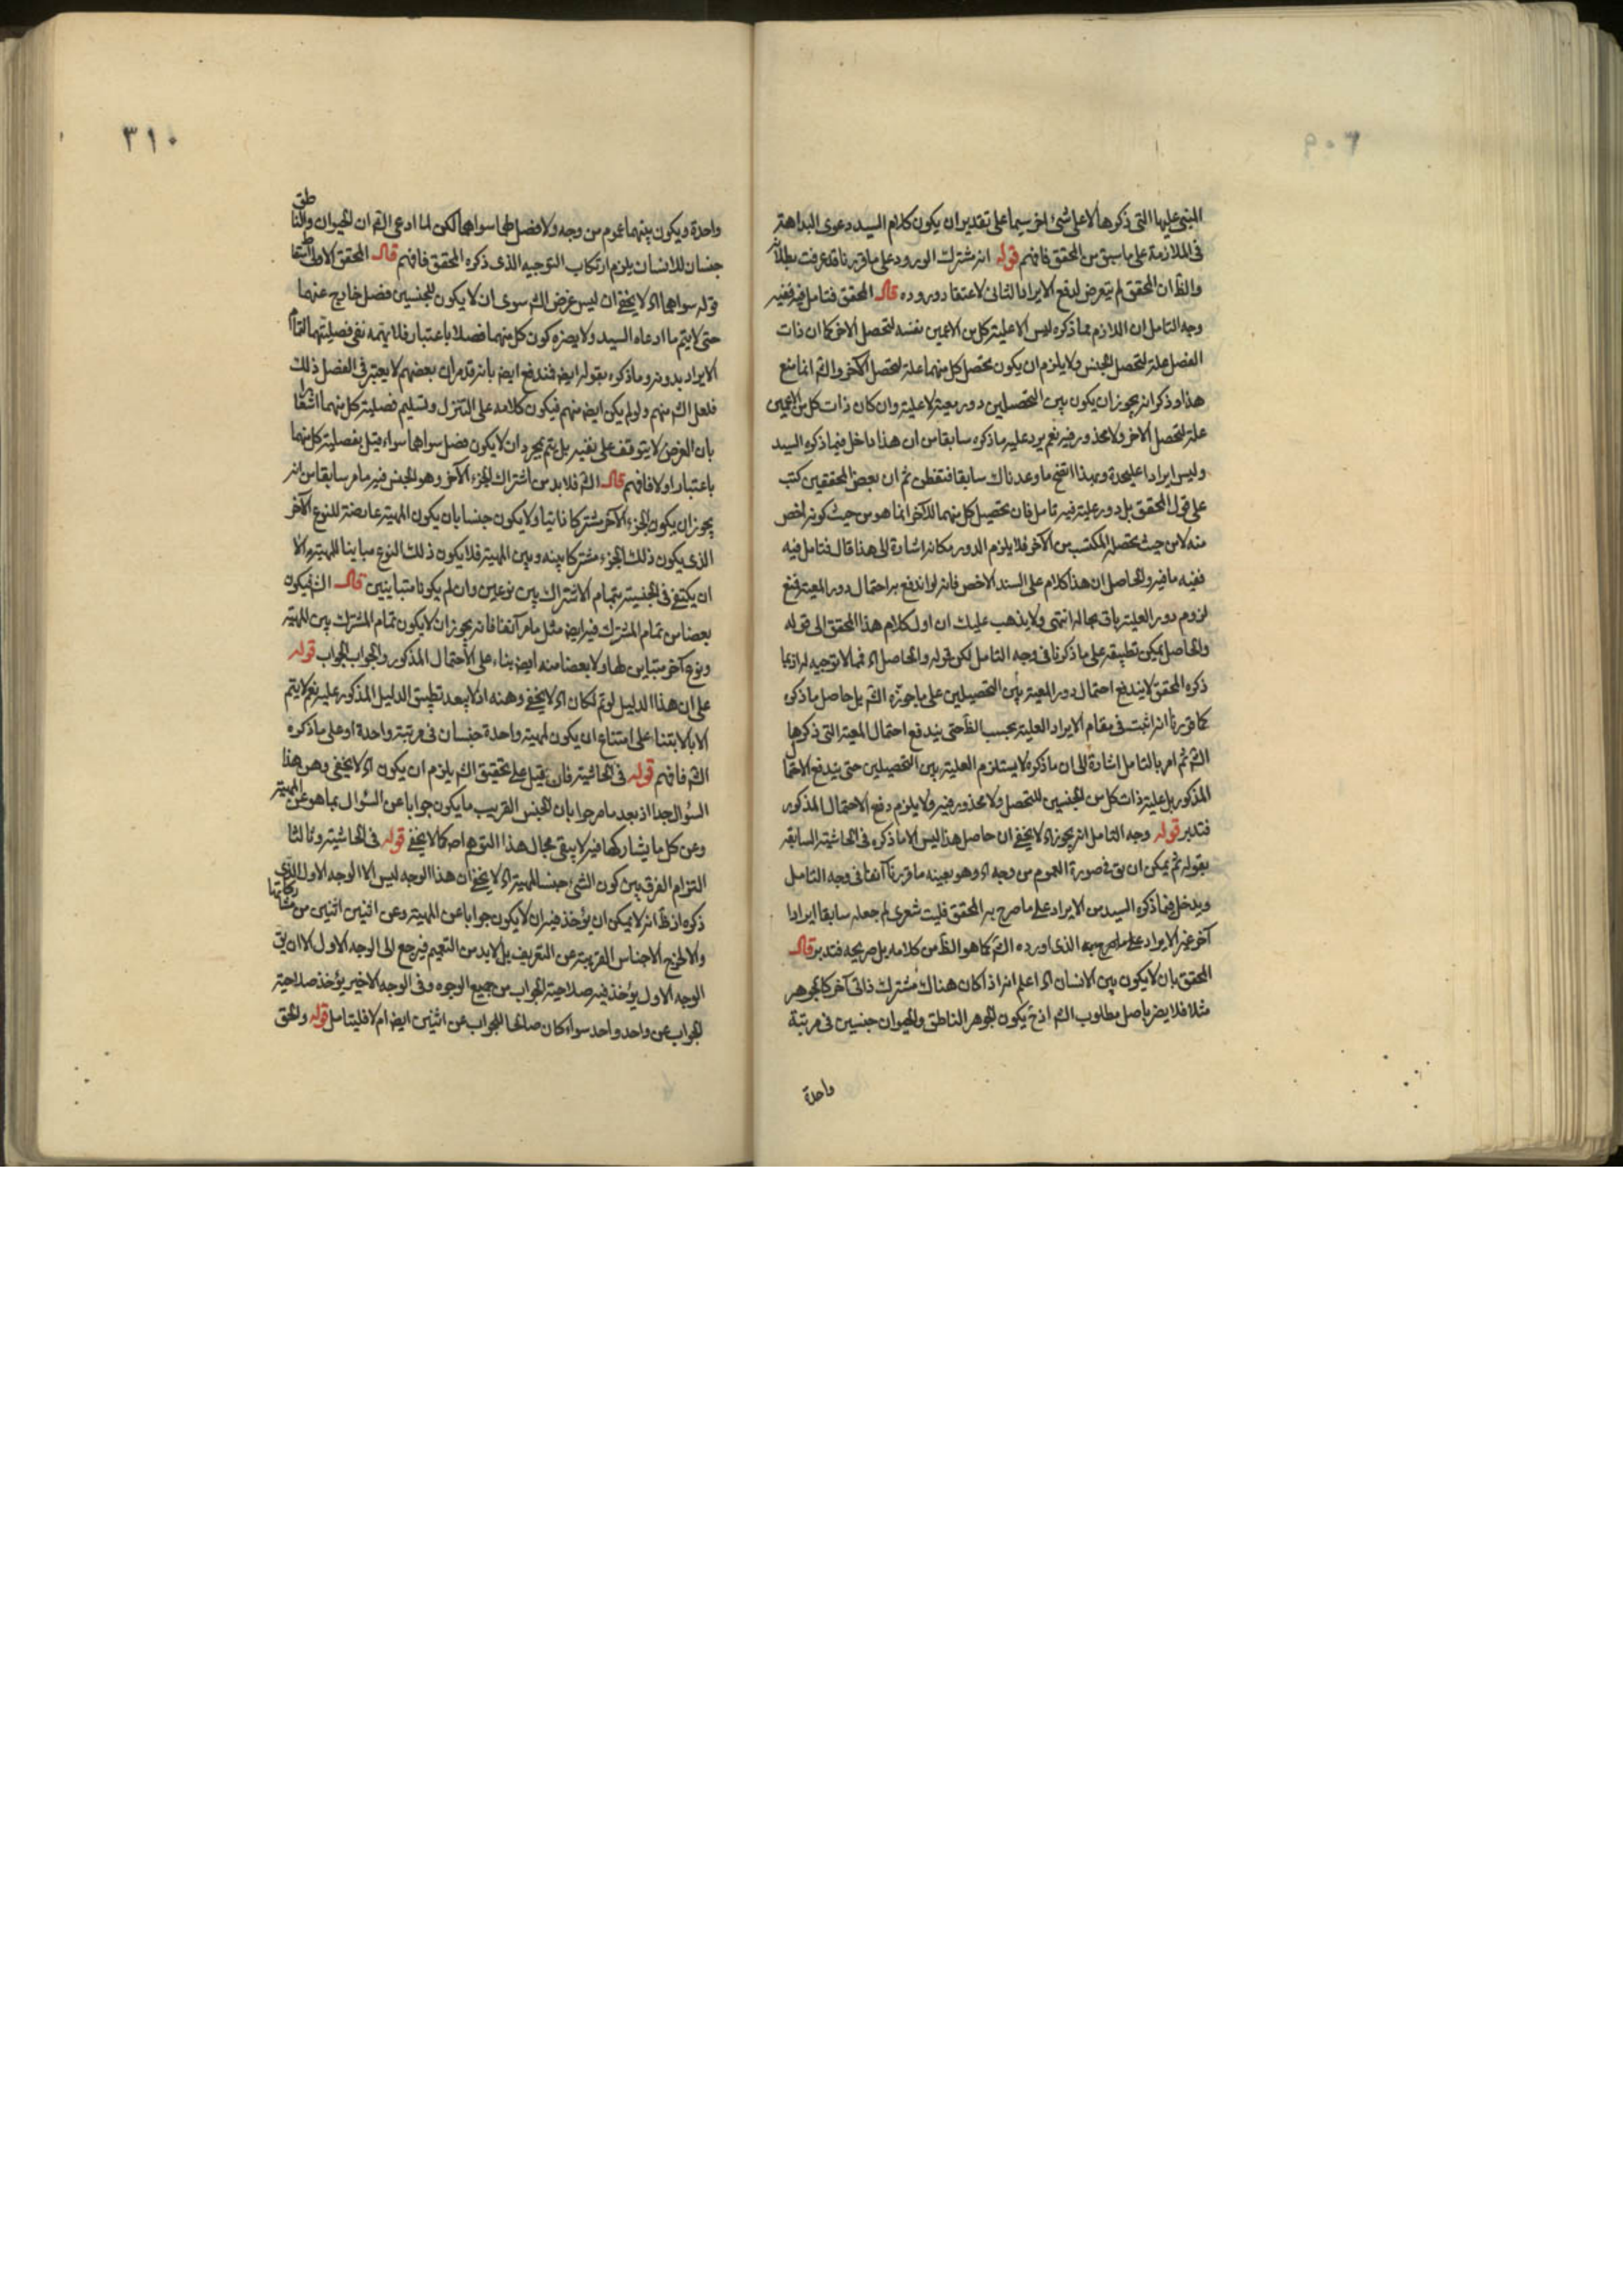 ٣٠٩
المبنى عليها التى ذكروها لا على شئ اخر سيما على تقدير ان يكون كلام السيد دعوى البداهة
فى الملازمة على ما سبق من المحقق فافهم قوله انه مشترك الورود على ما قررنا قد عرفت بطلانه
والظ ان المحقق لم يتعرض لدفع الايراد الثانى لاعتقاد وروده قال المحقق فتامل فيه ففيه
وجه التامل ان اللازم مما ذكره ليس الا علية كل من الاعمين نفسه لتحصل الاخر كما ان ذات
الفصل علة لتحصل الجنس ولا يلزم ان يكون تحصل كل منهما علة لتحصل الآخر والش انما منع
هذا وذكر انه يجوز ان يكون بين التحصلين دور معية لا علية وان كان ذات كل من الاعمين
علة لتحصل الاخر ولا محذور فيه نعم يرد عليه ما ذكره سابقا من ان هذا داخل فيما ذكره السيد
وليس ايرادا عليحدة وبهذا اتضح ما وعدناك سابقا فتفطن ثم ان بعض المحققين كتب
على قول المحقق بل دور علية فيه تامل فان تحصيل كل منهما للآخر انما هو من حيث كونه اخص
منه لا من حيث تحصله المكتسب من الآخر فلا يلزم الدور مكانه اشارة الى هذا قال فتامل فيه
ففيه ما فيه والحاصل ان هذا كلام على السند الاخص فانه لو اندفع به احتمال دور المعية فمنع
لزوم دور العلية باق بحاله انتهى ولا يذهب عليك ان اول كلام هذا المحقق الى قوله
والحاصل يمكن تطبيقه على ما ذكرنا فى وجه التامل لكن قوله والحاصل اه فمما لا توجيه له اذ بما
ذكره المحقق لا يندفع احتمال دور المعية بين التحصيلين على ما جوزه الش بل حاصل ما ذكره
كما قررنا انه اثبت فى مقام الايراد العلية بحسب الظ حتى يندفع احتمال المعية التى ذكرها
الش ثم امر بالتامل اشارة الى ان ما ذكره لا يستلزم العلية بين التحصيلين حتى يندفع الاحتما
المذكور بل علية ذات كل من الجنسين للتحصل ولا محذور فيه ولا يلزم دفع الاحتمال المذكور
فتدبر قوله وجه التامل انه يجوز اه لا يخفى ان حاصل هذا ليس الا ما ذكره فى الحاشية السابقة
بقوله ثم يمكن ان يق فى صورة العموم من وجه اه وهو بعينه ما قررنا آنفا فى وجه التامل
ويدخل فيما ذكره السيد من الايراد على ما صرح به المحقق فليت شعرى لم جعله سابقا ايرادا
آخر غير الايراد على ما صرح به الذى اورده الش كما هو الظ من كلامه بل صريحه فتدبر قال
المحقق بان لا يكون بين الانسان اه اعلم انه اذا كان هناك مشترك ذاتى آخر كالجوهر
مثلا فلا يضر باصل مطلوب الش اذ ح يكون الجوهر الناطق والحيوان جنسين فى مرتبة
واحدة
٣١٠
واحدة ويكون بينهما عموم من وجه ولا فصل لهما سواهما لكن لما ادعى الش ان الحيوان والناطق
جنسان للانسان يلزم ارتكاب التوجيه الذى ذكره المحقق فافهم قال المحقق الاولى اسقاط
قوله سواهما اه لا يخفى ان ليس غرض الش سوى ان لا يكون للجنسين فصل خارج عنهما
حتى لا يتم ما ادعاه السيد ولا يضره كون كل منهما فصلا باعتبار فلا يهمه نفى فصليتهما لتمام
الايراد بدونه وما ذكره بقوله ايض فندفع ايض بانه قد مر ان بعضهم لا يعتبر فى الفصل ذلك
فلعل الش منهم ولو لم يكن ايض منهم فيكون كلامه على التنزل وتسليم فصلية كل منهما اشعارا
بان الغرض لا يتوقف على نفيه بل يتم بمجرد ان لا يكون فصل سواهما سواء قيل بفصلية كل منهما
باعتبار اولا فافهم قال الش فلا بد من اشتراك الجزء الآخر وهو الجنس فيه ما مر سابقا من انه
يجوز ان يكون الجزء الآخر مشتركا ذاتيا ولا يكون جنسا بان يكون المهية عارضة للنوع الآخر
الذى يكون ذلك الجزء مشتركا بينه وبين المهية فلا يكون ذلك النوع مباينا للمهية والا
ان يكتفى فى الجنسية بتمام الاشتراك بين نوعين وان لم يكونا متباينين قال الش فيكون
بعضا من تمام المشترك فيه ايض مثل ما مر آنفا فانه يجوز ان لا يكون تمام المشترك بين المهية
ونوع آخر متباين لها ولا بعضا منه ايض بناء على الاحتمال المذكور والجواب الجواب قوله
على ان هذا الدليل لو تم لكان اه لا يخفى وهنه اذ لا يبعد تطبيق الدليل المذكور عليه نعم لا يتم
الا بالابتناء على امتناع ان يكون لمهية واحدة جنسان فى مرتبة واحدة او على ما ذكره
الش فافهم قوله فى الحاشية فان قيل على تحقيق الش يلزم ان يكون اه لا يخفى وهن هذا
السؤال جدا اذ بعد ما مر جوابا بان الجنس القريب ما يكون جوابا عن السؤال بما هو عن المهية
وعن كل ما يشاركها فيه لا يبقى مجال هذا التوهم اصلا كما لا يخفى قوله فى الحاشية وثالثا
التزام الفرق بين كون الشئ جنسا للمهية اه لا يخفى ان هذا الوجه ليس الا الوجه الاول الذى
ذكره اذ ظ انه لا يمكن ان يؤخذ فيه ان لا يكون جوابا عن المهية وعن اثنين اثنين من مشاركاتها
والا لخرج الاجناس القريبة عن التعريف بل لا بد من التعميم فيرجع الى الوجه الاول الا ان يق
الوجه الاول يؤخذ فيه صلاحية الجواب من جميع الوجوه وفى الوجه الاخير يؤخذ صلاحية
الجواب عن واحد واحد سواء كان صالحا للجواب عن اثنين ايض ام لا فليتامل قوله والحق